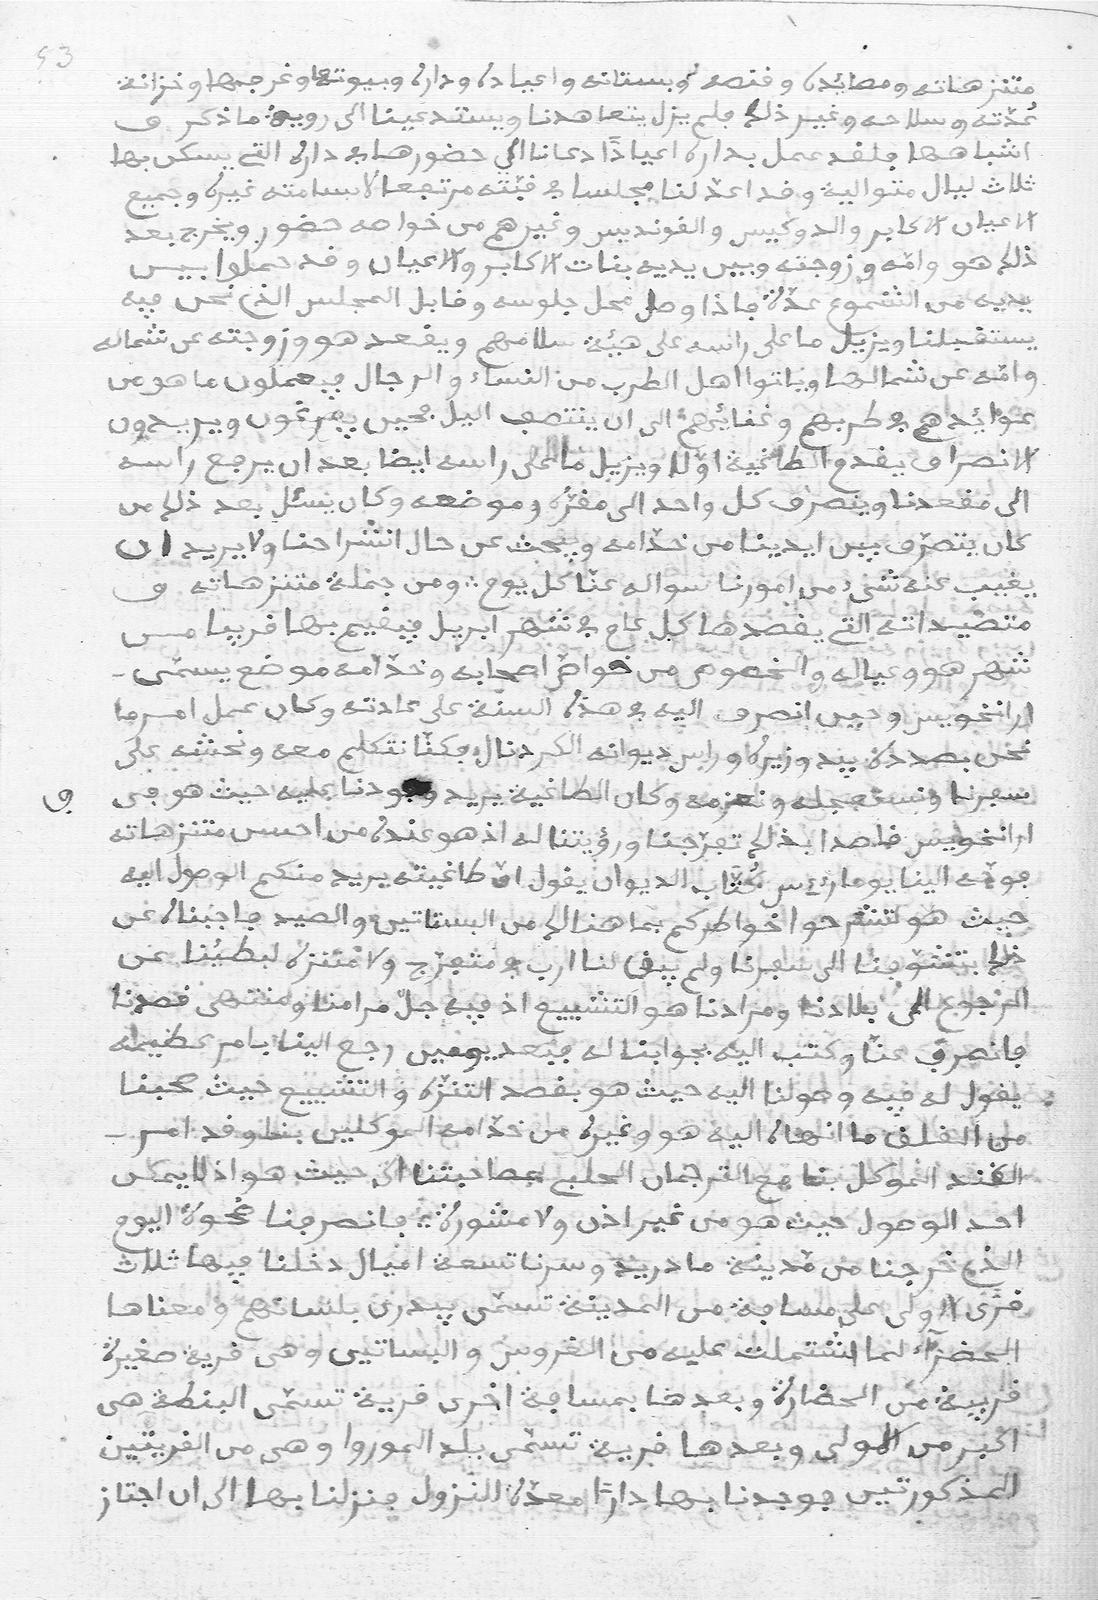 53
متنزهاته ومصائده وقنصه وبستانه واعياده وداره وبيوتها وغرجمها وخزانة
عُدّته وسلاحه وغير ذلك فلم يزل يتعاهدنا ويستدعينا الى روية ما ذكر و
اشباهها فلقد عمل بداره اعيادًا دعانا الى حضورها في داره التي يسكن بها
ثلاث ليال متوالية وقد اعدّ لنا مجلسا في قبّته مرتفعا لا يسامته غيره وجميع
الاعيان الاكابر والدوكيس والقونديس وغيرهم من خواصه حضور ويخرج بعد
ذلك هو وامّه وزوجته وبين يديه بنات الاكابر والاعيان وقد حملوا بيس
يديه من الشموع عدّة فاذا وصل محل جلوسه وقابل المجلس الذي نحن فيه
يستقبلنا ويزيل ما على راسه على هيئة سلامهم ويقعد هو وزوجته عن شماله
وامّه عن شمالها وياتوا اهل الطرب من النساء والرجال فيعملون ما هو من
عوائدهم في طربهم وغنائهم الى ان ينتصف اليل فحين يفرغون ويريدون
الانصراف يقدم الطاغية اوّلا ويزيل ما على راسه ايضا بعد ان يرجع راسه
الى مقعدنا وينصرف كل واحد الى مقرّه وموضعه وكان يسئل بعد ذلك من
كان يتصرّف بين ايدينا من خدّامه ويبحث عن حال انشراحنا ولا يريد ان
يغيب عنه شيء من امورنا سواله عنّا كل يوم ومن جملة متنزهاته و
متصيداته التي يقصدها كل عام في شهر ابريل فيقيم بها قريبا من
شهر هو وعياله والخصوص من خواصّ اصحابه وخدّامه موضع يسمّى
ارانخويس وحين انصرف اليه في هذه السنة على عادته وكان عمل امر ما
نحن بصدده بيد وزيره وراس ديوانه الكردنال فكنّا نتكلم معه ونحثه على
سفرنا ونستعجله ونعزمه وكان الطاغية يريد وفودنا عليه حيث هو في
و
ارانخويس قاصدا بذلك تفرّجنا ورؤيتنا له اذ هو عنده من احسن متنزهاته
فوجّه الينا يوما رئيس كُتّاب الديوان يقول انّ طاغيته يريد منكم الوصول اليه
حيث هو لتنشرحوا خواطركم بما هنالك من البساتين والصيد فاجبناه عن
ذلك بتشوّفنا الى سفرنا ولم يبق لنا ارب في متفرّج ولا متنزه لبطئنا عن
الرجوع الى بلادنا ومرادنا هو التشييع اذ فيه جلّ مرامنا ومنتهى قصدنا
فانصرف عنّا وكتب اليه بجوابنا له فبعد يومين رجع الينا بامر عظيمه
يقول له فيه وصولنا اليه حيث هو بقصد التنزّه والتشييع حيث صحبنا
من القلق ما انهاه اليه هو وغيره من خدّامه الموكلين بنا وقد امر
القند الموكل بنا مع الترجمان الحلبي بمصاحبتنا الى حيث هو اذ لا يمكن
احد الوصول حيث هو من غير اذن ولا مشورة فانصرفنا ضحوة اليوم
الذي خرجنا من مدينة مادريد وسرنا تسعة اميال دخلنا فيها ثلاث
قرًى الاولى على مسافة من المدينة تسمّى بيدرى بلسانهم ومعناها
الخضرآء لما اشتملت عليه من الغروس والبساتين وهي قرية صغيرة
قريبة من الحضارة وبعدها بمسافة اخرى قرية تسمّى البنطة هي
اكبر من الاولى وبعدها قرية تسمّى بلد الموروا وهي من القريتين
المذكورتين فوجدنا بها دارًا معدّة للنزول فنزلنا بها الى ان اجتاز